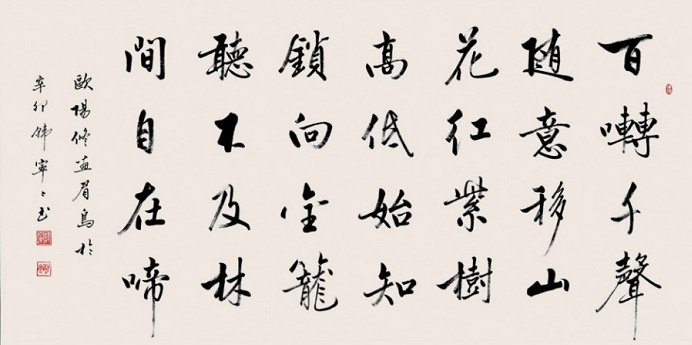 百囀千聲
随意移山
花紅紫樹
高低始知
鎖向金籠
聽不及林
間自在啼
歐陽修画眉鳥於
辛卯